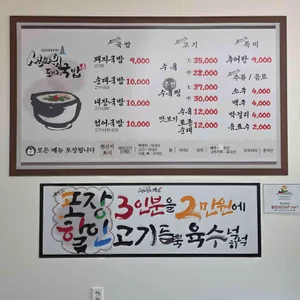 선바위
돼지국밥
국밥
돼지국밥 9,000
순대국밥 10,000
내장국밥 10,000
섞어국밥 10,000
고기
수육
大 35,000
中 28,000
大 37,000
中 30,000
맛보기
수육 12,000
순대
특미
추어탕 9,000
주류 / 음료
소주 4,000
맥주 4,000
막걸리 4,000
음료수 2,000
모든 메뉴 포장됩니다
원산지
표시
포장 3인분을 2만원에
할인 고기듬뿍 육수넉넉히